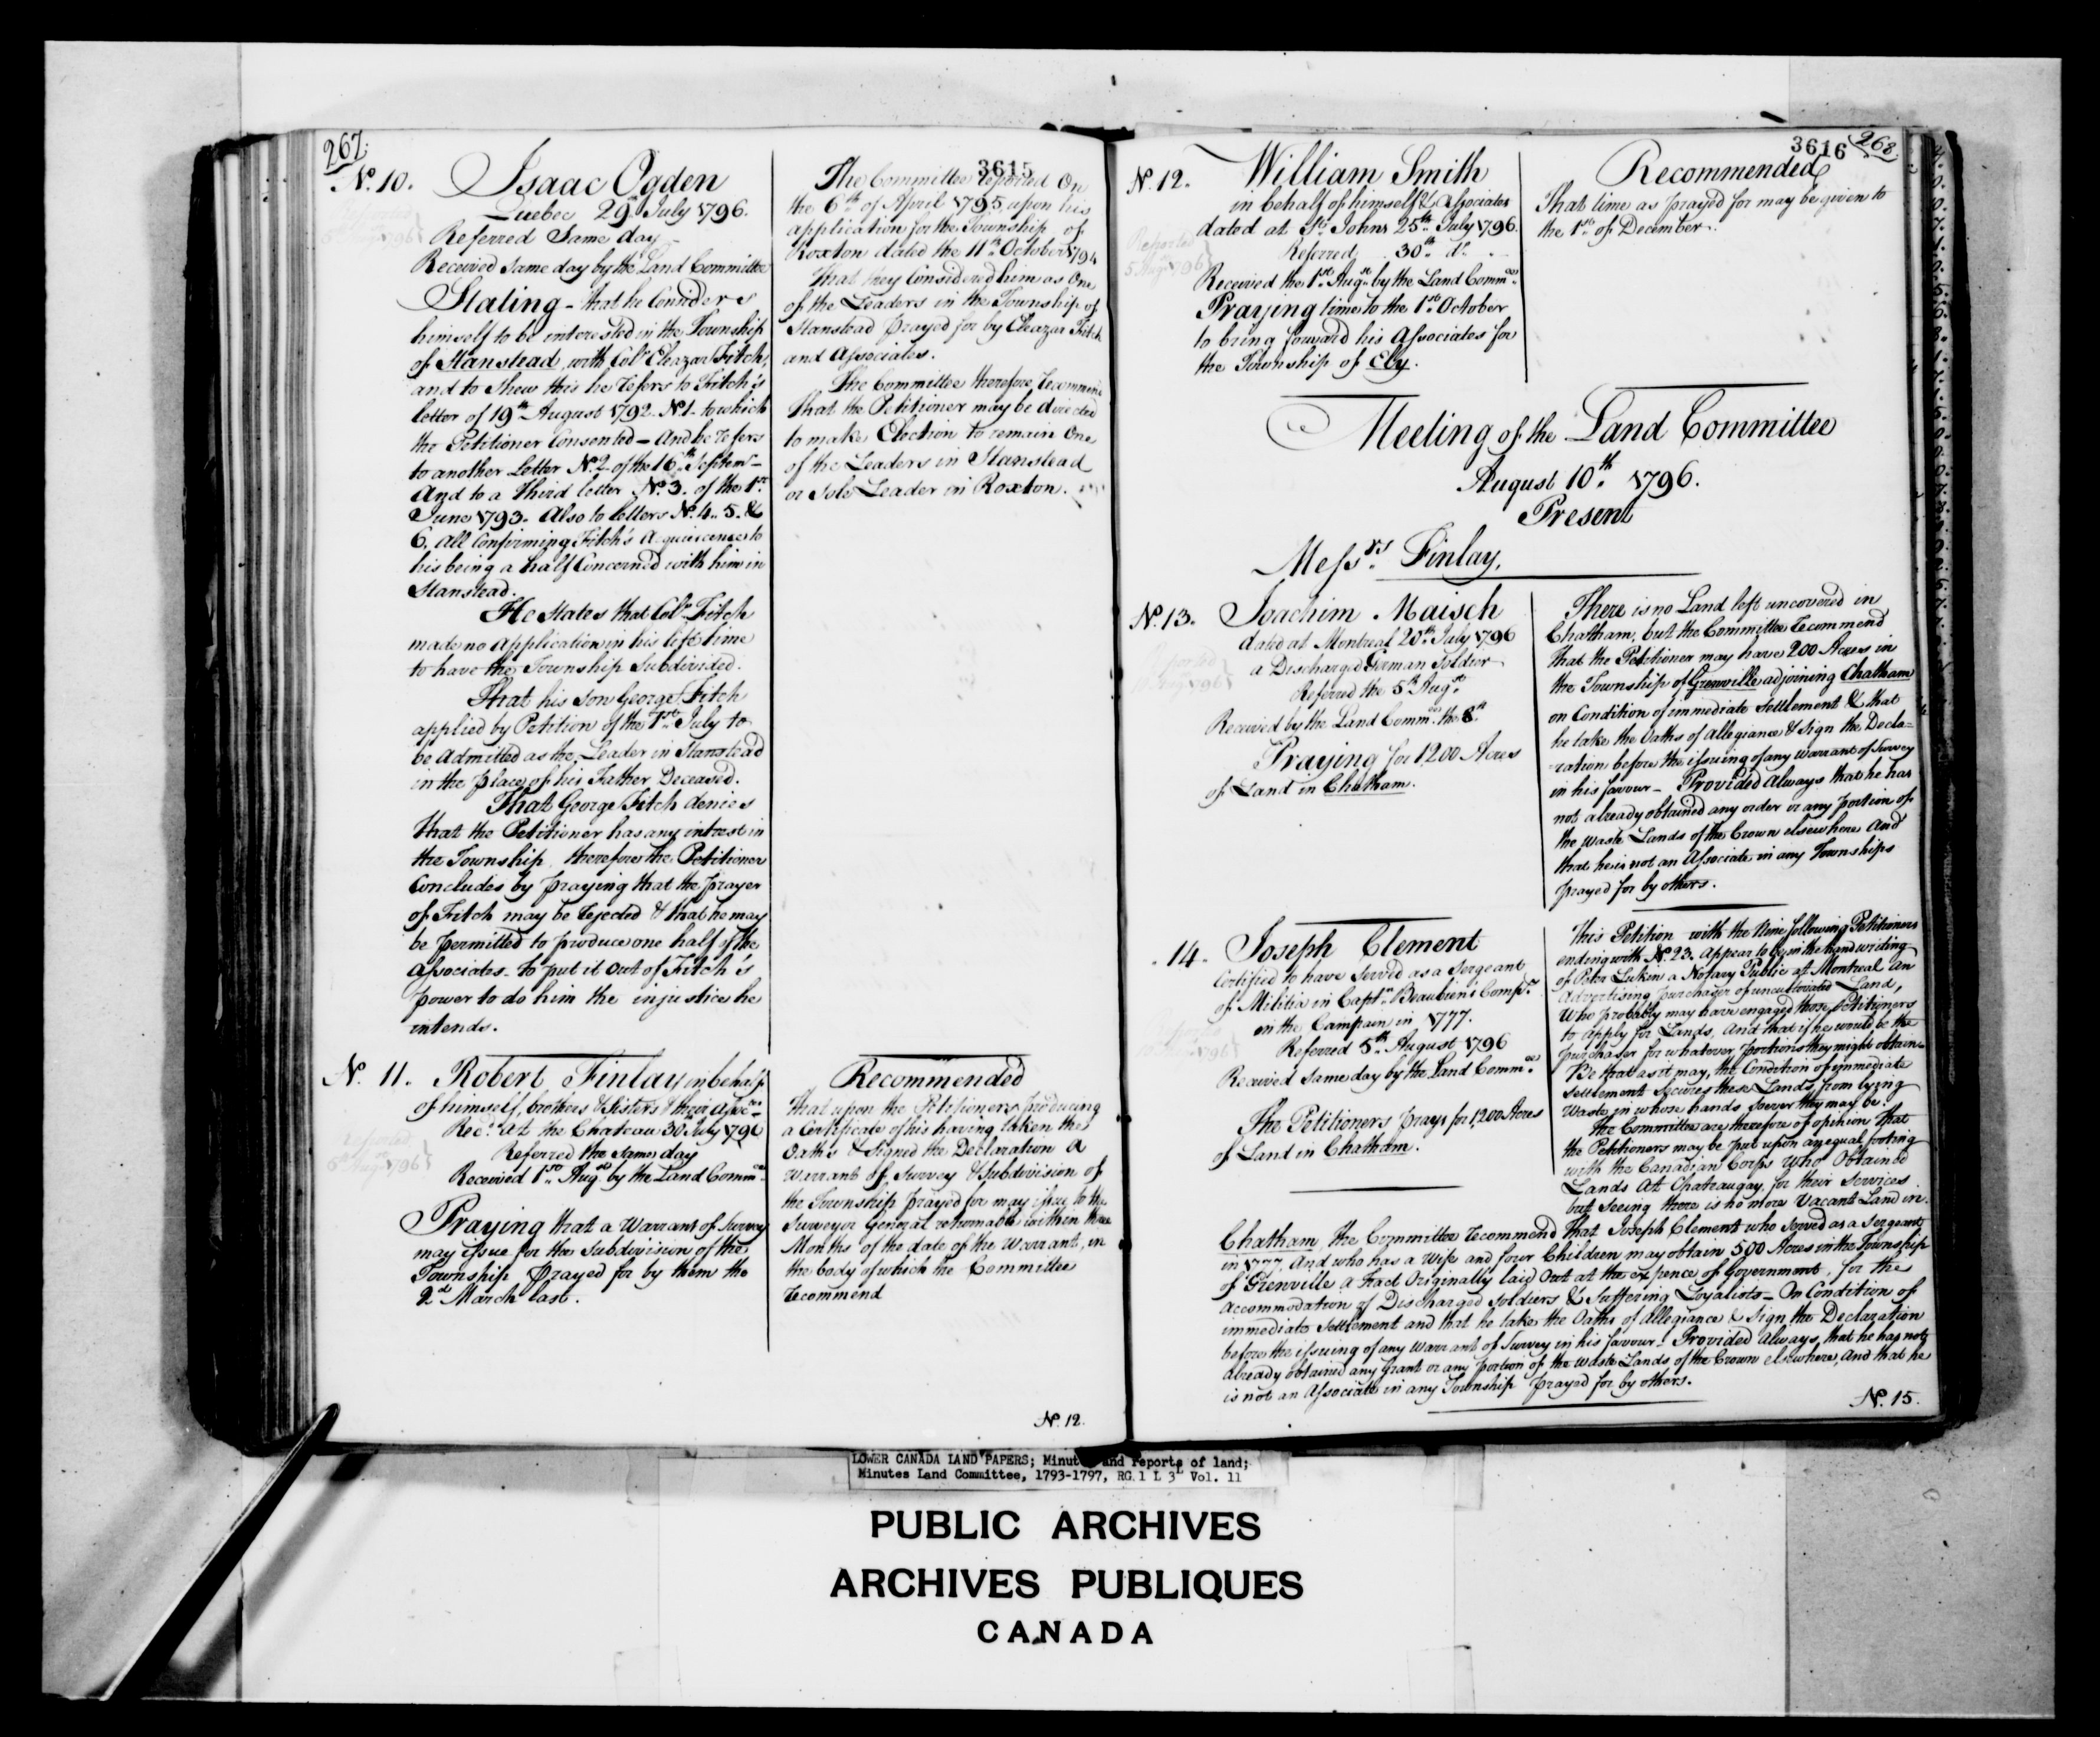 267.
3615
N.º 10. Isaac Ogden
Quebec 29th July 1796.
Referred Same day
Received same day by the Land Committee
Stating - that he Considers
himself to be interested in the Township
of Stanstead, with Colº Eleazar Fitch,
and to shew this he refers to Fitch's
letter of 19th August 1792. Nº 1. to which
the Petitioner Consented - And he refers
to another Letter Nº 2 of the 16th Septemr
And to a third letter Nº 3. of the 1st
June 1793. Also to letters Nº 4. 5. &
6. all Confirming Fitch's Acquiescence to
his being a half Concerned with him in
Stanstead.
He States that Colº Fitch
made no application in his life time
to have the Township Subdivided.
That his Son George Fitch
applied by Petition of the 1st July to
be Admitted as the Leader in Stanstead
in the place of his Father Deceased.
That George Fitch denies
that the Petitioner has any intrest in
the Township therefore the Petitioner
Concludes by praying that the prayer
of Fitch may be rejected & that he may
be permitted to produce one half of the
associates - to put it out of Fitch's
power to do him the injustice he
intends.
The Committee reported On
the 6th of April 1795 upon his
application for the Township of
Roxton dated the 11th October 1794
That they Considered him as One
of the Leaders in the Township of
Stanstead prayed for by Eleazar Fitch
and Associates.
The Committee therefore recommend
That the Petitioner may be directed
to make Election to remain One
of the Leaders in Stanstead
or Sole Leader in Roxton.
N.º 11. Robert Finlay in behalf
of himself, brothers & Sisters & their Assoces
Recd At the Chateau 30 July 1796
Referred the same day
Received 1st Augst by the Land Commee
Reported
5th Augst 1796
Praying that a Warrant of Survey
may issue for the subdivision of the
Township prayed for by them the
2d March last.
Recommended
That upon the Petitioners producing
a Certificate of his having taken the
Oaths & signed the Declaration a
Warrant of Survey & Subdivision of
the Township prayed for may issue to the
Surveyor General returnable within three
Months of the date of the Warrant, in
the body of which the Committee
recommend
Nº 12.
3616
268
Nº 12. William Smith
in behalf of himself & Associates
dated at St Johns 25th July 1796.
Referred 30th do
Received the 1st Augst by the Land Commee
Reported
5 Augst 1796
Praying time to the 1st October
to bring forward his Associates for
the Township of Ely.
Recommended
That time as prayed for may be given to
the 1st of December.
Meeting of the Land Committee
August 10th 1796.
Present
Messrs Finlay,
Nº 13. Joachim Maisch
dated at Montreal 20th July 1796
a Discharged German Soldier
Referred the 5th Augst
Received by the Land Commee the 8th
Praying for 1200 Acres
of Land in Chatham.
There is no Land left uncovered in
Chatham, but the Committee recommend
that the Petitioner may have 200 Acres in
the Township of Grenville adjoining Chatham
on Condition of immediate Settlement & that
he take the Oaths of allegiance & Sign the Decla-
ration before the issuing of any warrant of Survey
in his favour - Provided always that he has
not already obtained any order or any portion of
the waste Lands of the Crown elsewhere And
that he is not an Associate in any Townships
prayed for by others.
14. Joseph Clement
Certified to have Served as a Sergeant
of Militia in Captn Beaubien's Compy
in the Campain in 1777.
Referred 5th August 1796
Received same day by the Land Commee
The Petitioners prays for 1200 Acres
of Land in Chatham.
This Petition with the Nine following Petitioners
ending with Nº 23. Appear to be in the hand writing
of Peter Lukin a Notary Public at Montreal an
Advertising purchaser of uncultivated Land,
Who probably may have engaged these Petitioners
to apply for Lands, And that if he would be the
purchaser for whatever portions they might obtain -
Be that as it may, the Condition of immediate
Settlement Secures these Lands from lying
Waste in whose hands soever they may be.
The Committee are therefore of opinion that
the Petitioners may be put upon an equal footing
with the Canadian Corps who Obtained
Lands At Chateaugay for their Services
but Seeing there is no more Vacant Land in
Chatham, the Committee recommend That Joseph Clement who served as a Sergeant
in 1777. And who has a Wife and four Children may obtain 500 Acres in the Township
of Grenville a Tract Originally laid Out at the expence of Government, for the
accommodation of Discharged Soldiers & Suffering Loyalists - On Condition of
immediate Settlement and that he take the Oaths of Allegiance & Sign the Declaration
before the issuing of any Warrant of Survey in his favour - Provided always, that he has not
already obtained any Grant or any portion of the waste Lands of the Crown elsewhere, And that he
is not an Associate in any Township prayed for by others.
Nº 15.
LOWER CANADA LAND PAPERS; Minutes and reports of land;
Minutes Land Committee, 1793-1797, RG 1 L 3L Vol. 11
PUBLIC ARCHIVES
ARCHIVES PUBLIQUES
CANADA